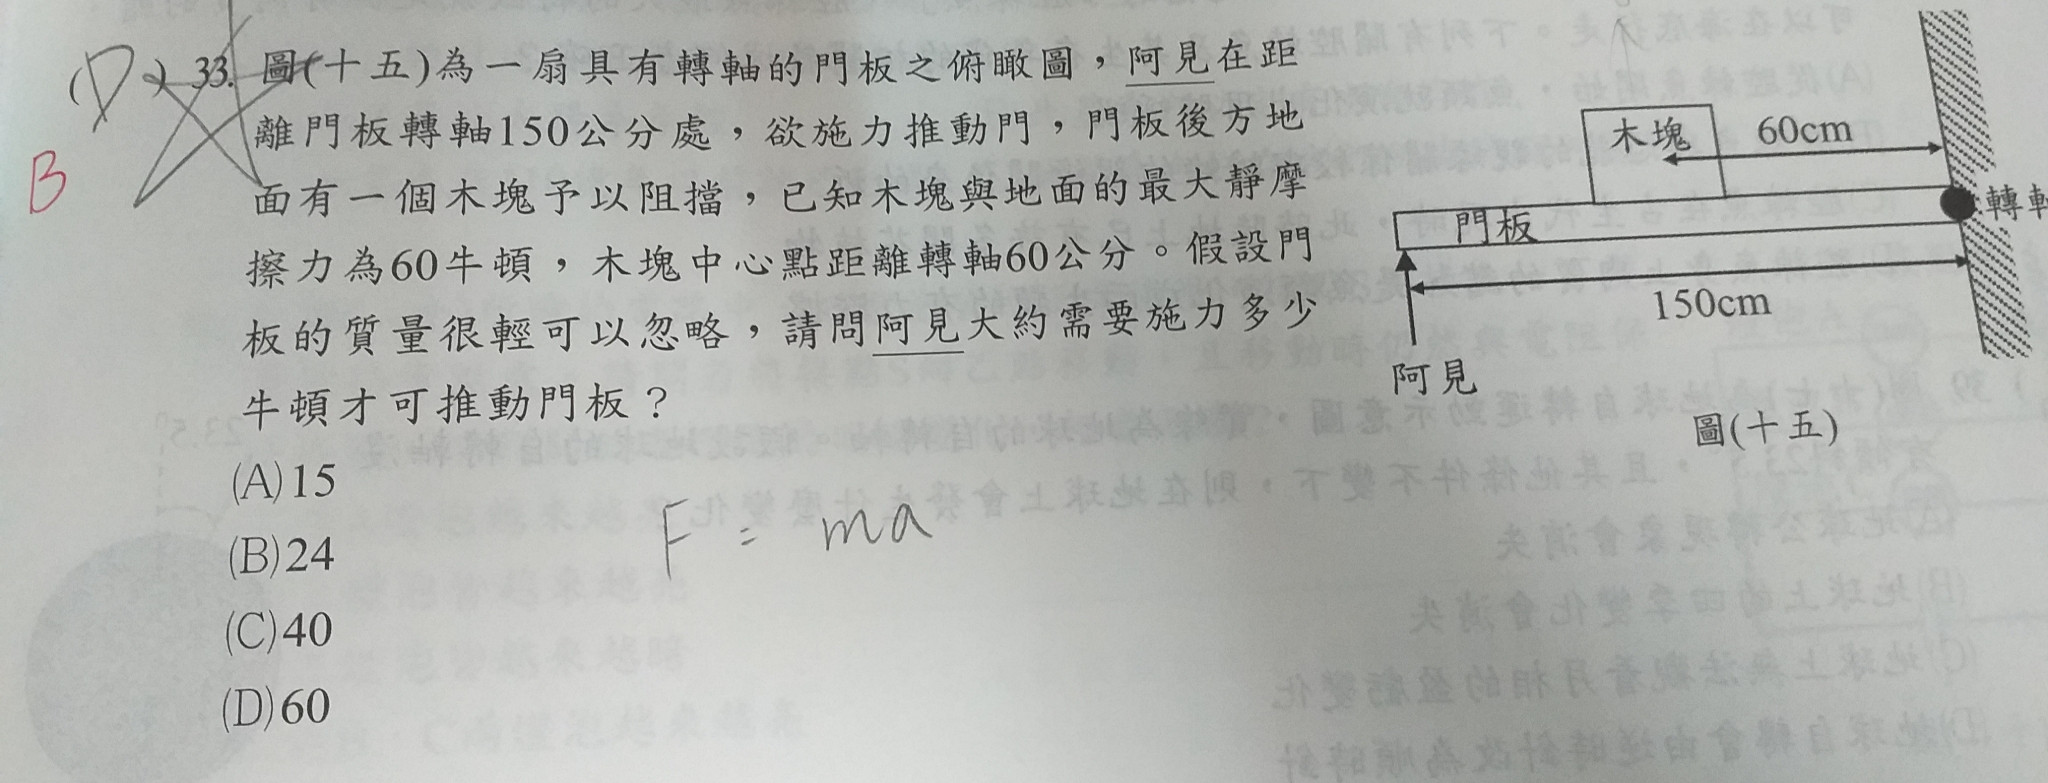 (D) 33. 圖(十五)為一扇具有轉軸的門板之俯瞰圖，阿見在距
離門板轉軸150公分處，欲施力推動門，門板後方地
B
面有一個木塊予以阻擋，已知木塊與地面的最大靜摩
擦力為60牛頓，木塊中心點距離轉軸60公分。假設門
板的質量很輕可以忽略，請問阿見大約需要施力多少
牛頓才可推動門板？
(A)15
(B)24
(C)40
(D)60
F = ma
木塊
60cm
門板
150cm
阿見
圖(十五)